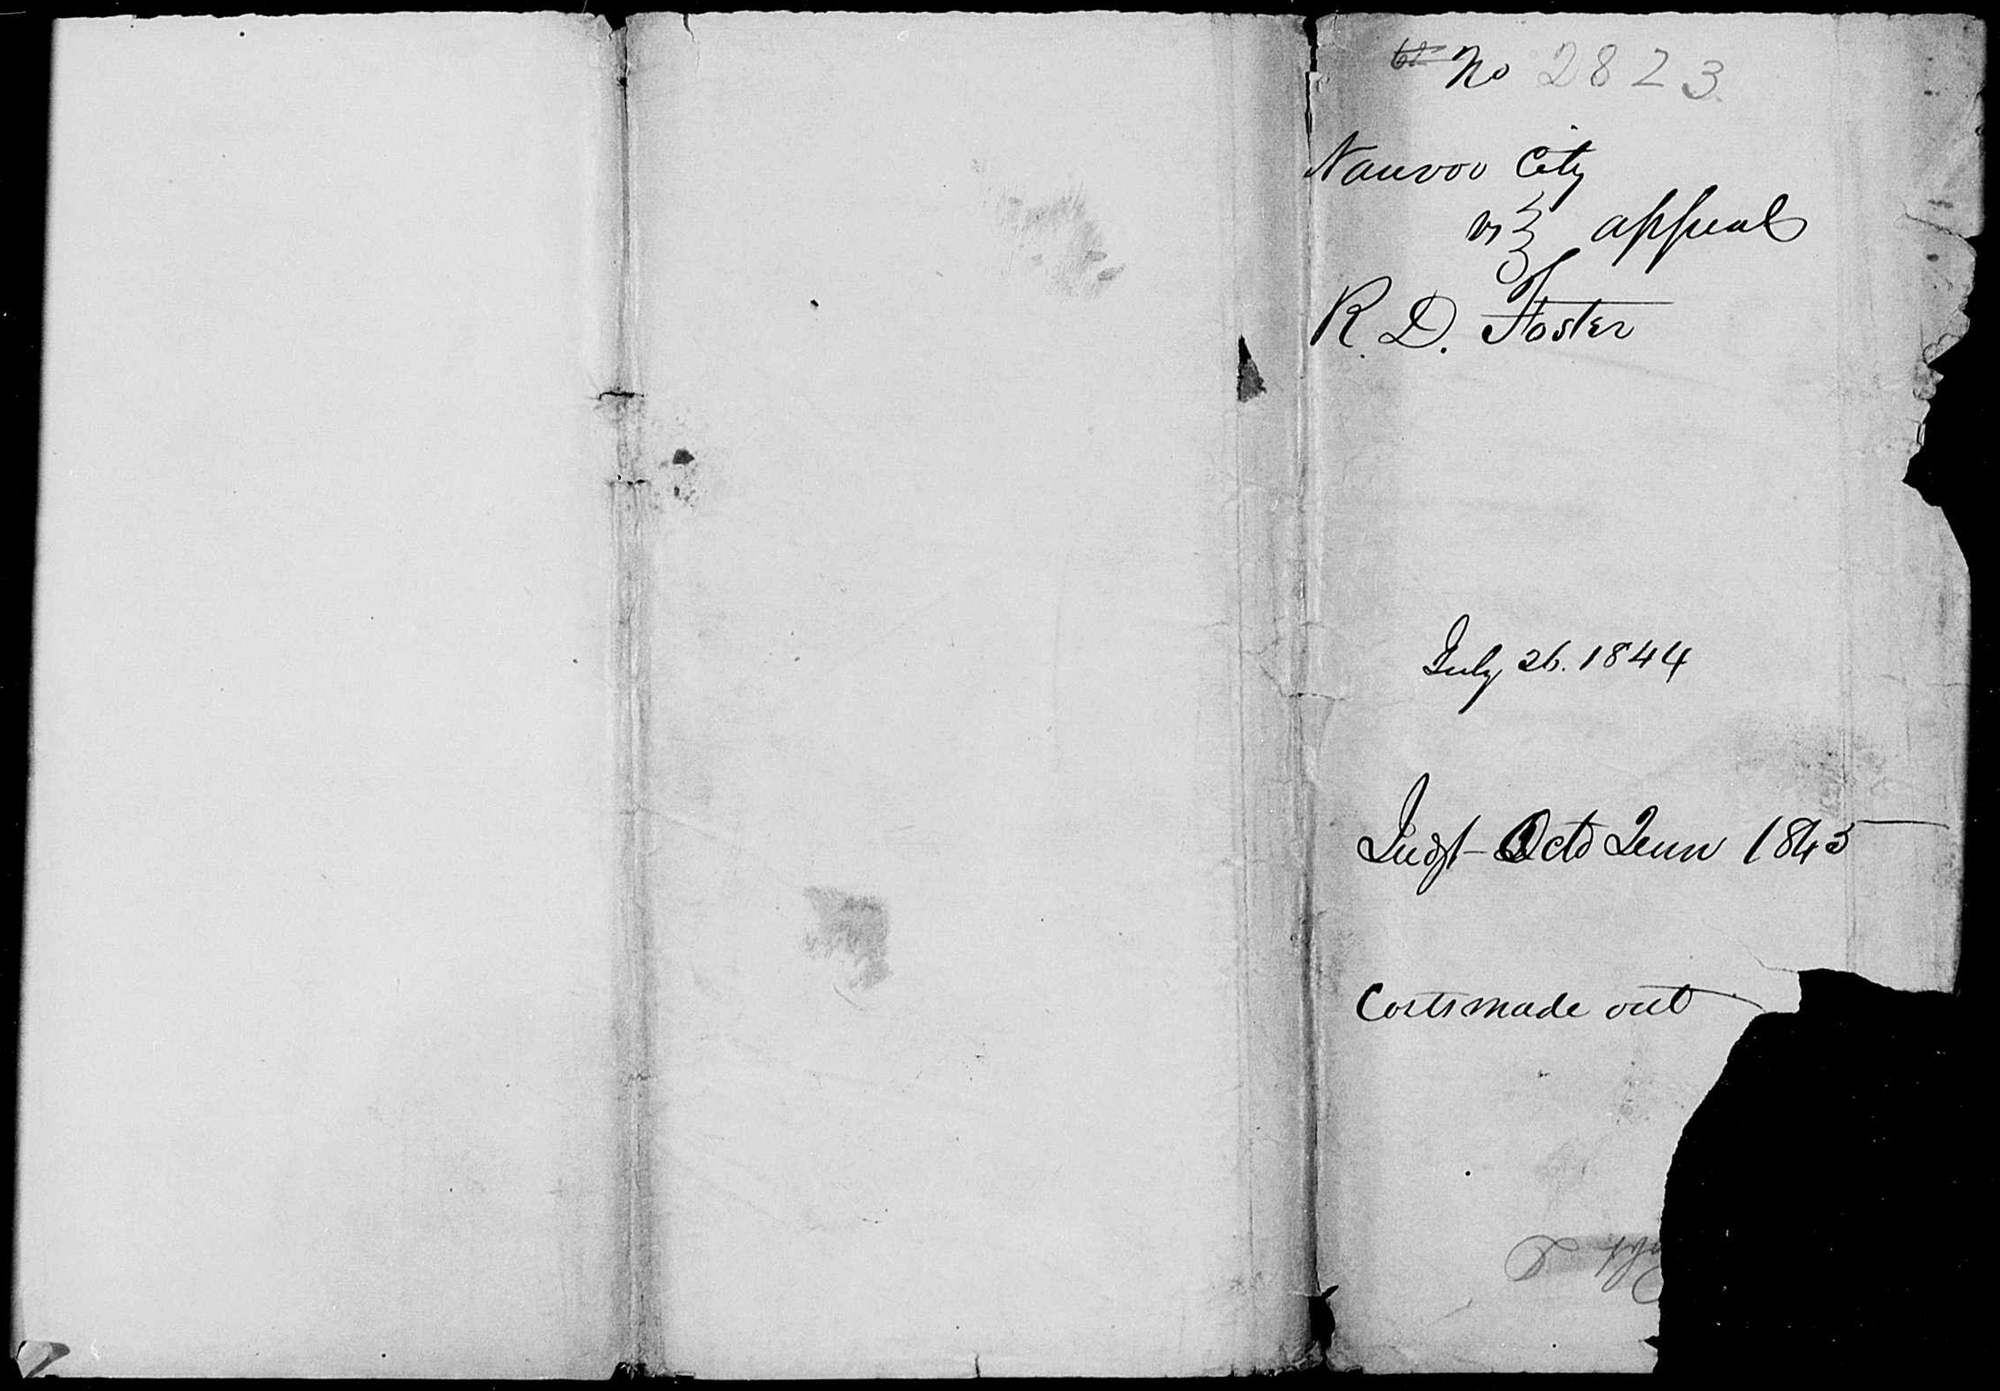 No 2823
Nauvoo City
vs } appeal
R. D. Foster
July 26. 1844
Judgt - Octo Term 1845
Costs made out